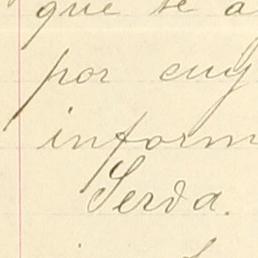 que se a
por cuy
inform
Serda.